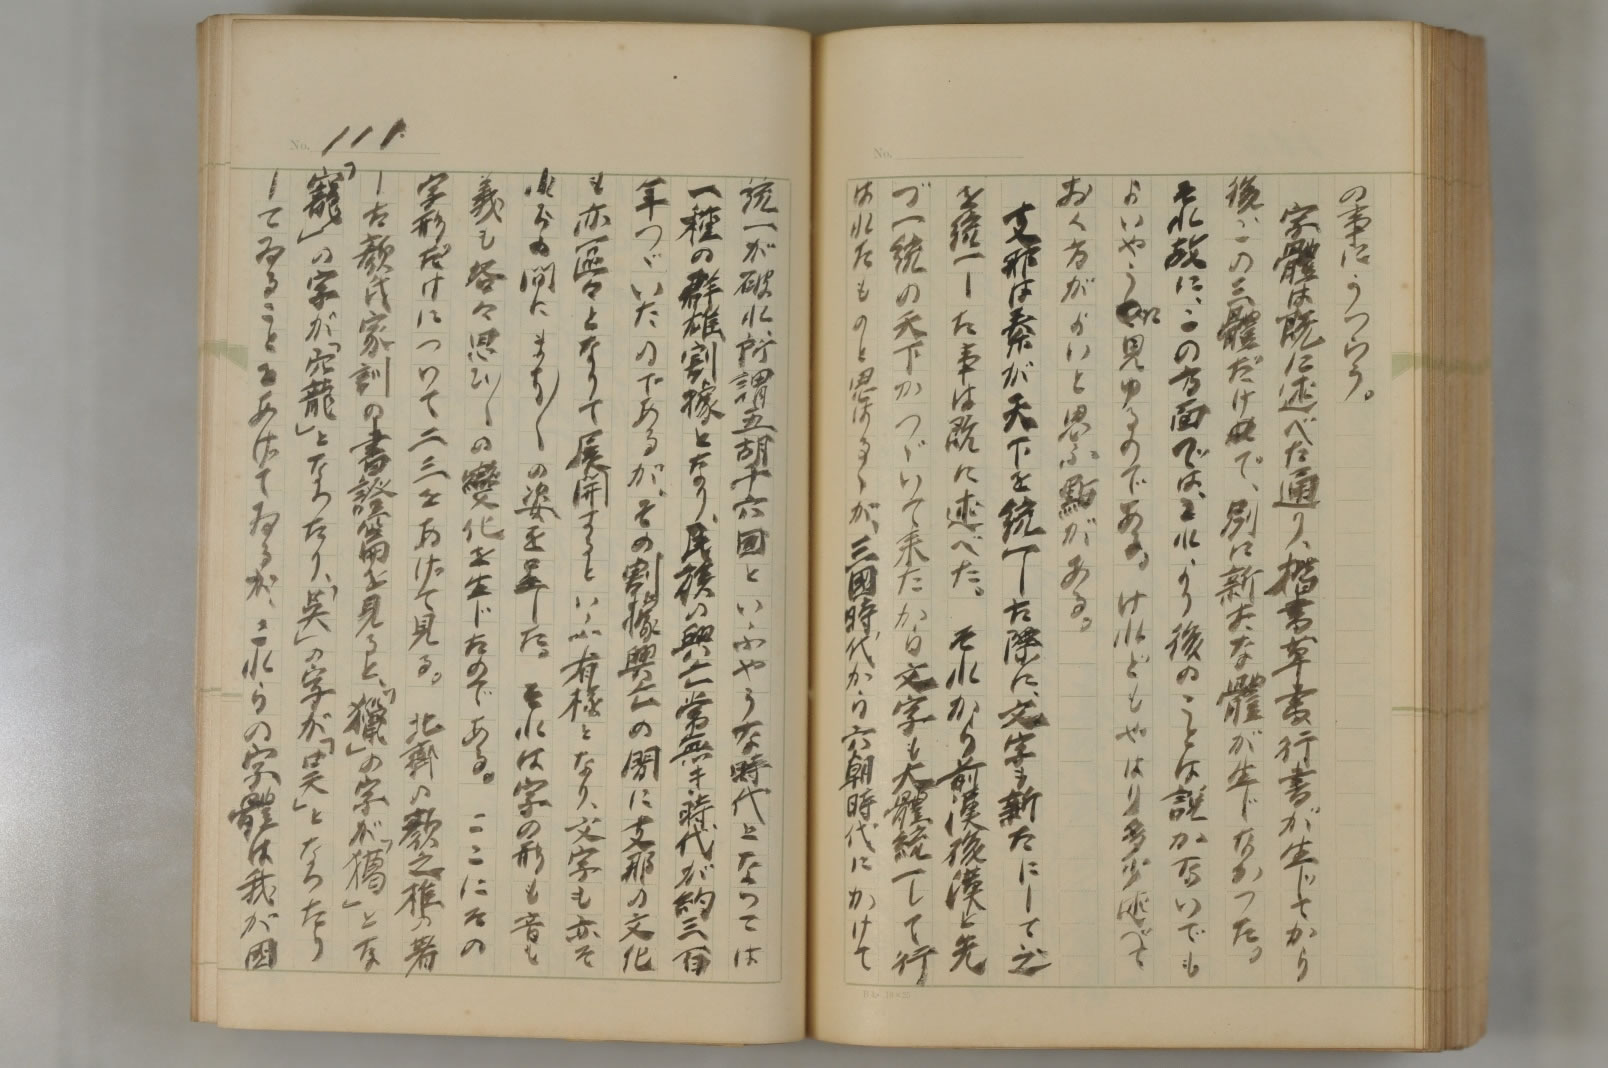 の事にうつらう。
字體は既に述べた通り、楷書草書行書が生じてから
後、この三體だけで、別に新たな體が生じなかつた。
それ故に、この方面では、これより後のことは説かないでも
よいやうに見ゆるのである。けれどもやはり多少述べて
おく方がよいと思ふ點がある。
支那は秦が天下を統一した際に、文字も新たにして之
を統一した事は既に述べた。それから前漢後漢と先
づ一統の天下がつゞいて来たから文字も大體統一して行
はれたものと思はるゝが、三國時代から六朝時代にかけて
No.
No. 111.
統一が破れ、所謂五胡十六国といふやうな時代となつては
一種の群雄割據となり、民族の興亡常無き時代が約三百
年つゞいたのであるが、その割據興亡の間に支那の文化
も亦區々となりて展開するといふ有様となり、文字も亦そ
れらの間にまち〱の姿を呈した。それは字の形も音も
義も各々思ひ〱の變化を生じたのである。ここにその
字形だけについて二三をあげて見る。北齊の顏之推の著
した顏氏家訓の書證篇を見ると、「獵」の字が「獦」とな
「寵」の字が「寵」となつたり、「吳」の字が「㕦」となつたり
してゐることをあげてゐるが、これらの字體は我が國